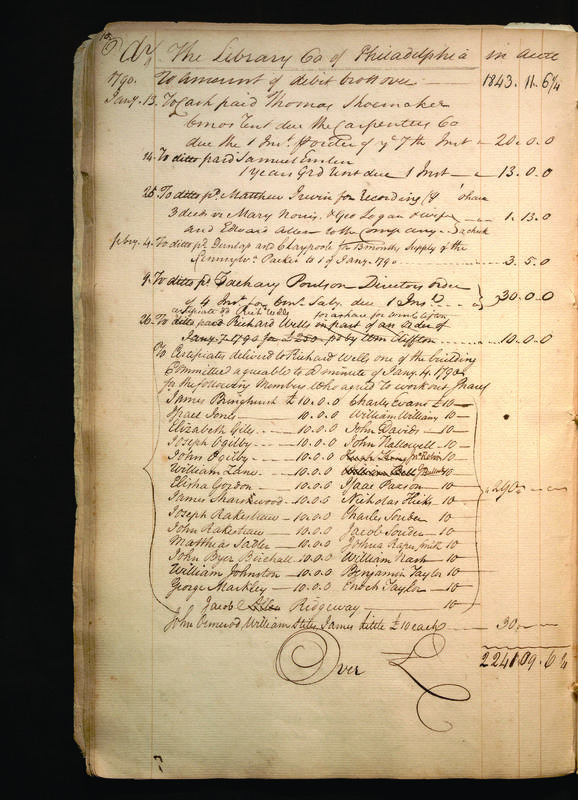 Dr The Library Co of Philadelphia in acco
1790. To amount of debit brot over 1843. 11. 6 1/4
Jany. 13. To Cash paid Thomas Shoemaker
6 mos Rent due the Carpenters Co
due the 1 Inst. order of ye 7th Inst 20. 0. 0
14. To ditto paid Samuel Emlen
1 years Grd rent due 1 Inst 13. 0. 0
25. To ditto pd. Matthew Irwin for Recording
3 deeds viz Mary Norris & Geo Logan & wife
and Edward to the Company 1. 13. 0
febry. 4. To ditto pd. Dunlop and Claypoole for 13 months Supply of the
Pennsylva. Packet to 1 of Jany. 1790 3. 5. 0
9. To ditto pd. Zachary Poulson Directors order
of 4 Inst. for 6 mo. Saly. due 1 Inst. 30. 0. 0
certificate to Richd. Wells for a share for Wm Clifton
26. To ditto paid Richard Wells in part of an order of
Jany. 7. 1790 for £200 pd by Wm Clifton 10. 0. 0
To Certificates delivered to Richard Wells one of the building
Committee agreeable to a minute of Jany. 4. 1790
for the following Members who agreed to work out Shares
James Bringhurst £10. 0. 0 Charles Evans £10
Israel Jones 10. 0. 0 William William 10
Elizabeth Giles 10. 0. 0 John Davids 10
Joseph Ogilby 10. 0. 0 John Hallowell 10
John Ogilby 10. 0. 0 10
William Zane 10. 0. 0 William Bell 10
Elisha Gordon 10. 0. 0 Isaac Paxson 10 290
James Sharswood 10. 0. 0 Nicholas Hicks 10
Joseph Rakestraw 10. 0. 0 Charles Souder 10
John Rakestraw 10. 0. 0 Jacob Souder 10
Matthias Sadler 10. 0. 0 Joshua Raper Smith 10
John Byer Birchall 10. 0. 0 William Nash 10
William Johnston 10. 0. 0 Benjamin Taylor 10
George Markley 10. 0. 0 Enoch Taylor 10
Jacob Ridgeway 10
John Ormerod, William Stiles James Kittle £10 each 30
Over £ 2241. 09. 6 1/4